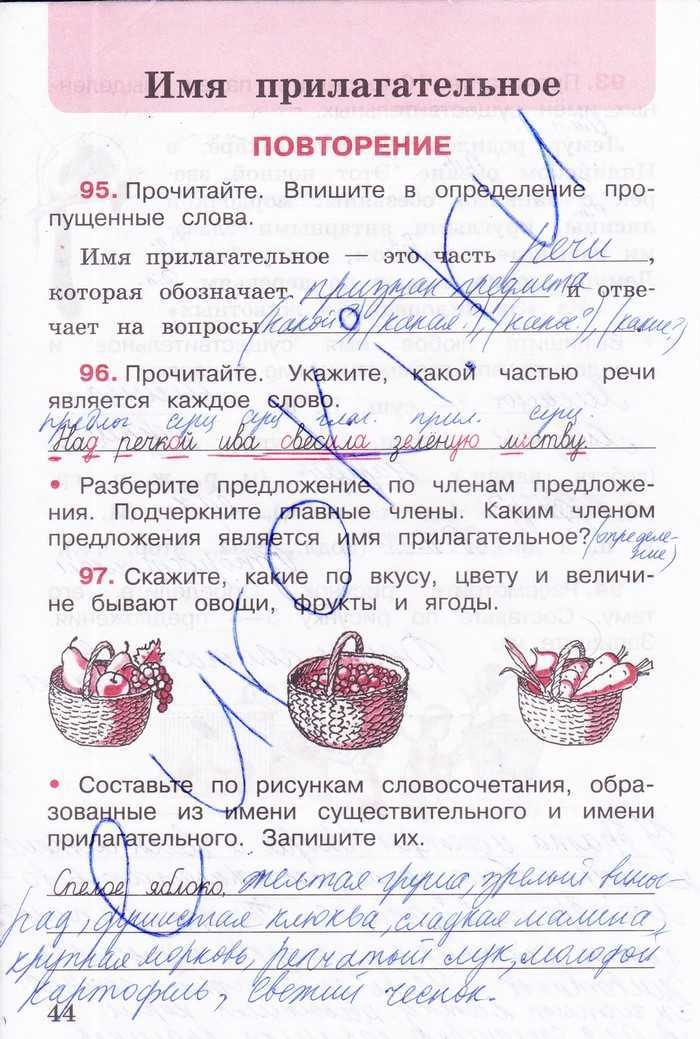 Имя прилагательное
ПОВТОРЕНИЕ
95. Прочитайте. Впишите в определение про-
пущенные слова.
Имя прилагательное — это часть речи,
которая обозначает признак предмета и отве-
чает на вопросы (какой?), (какая?), (какое?), (какие?)
96. Прочитайте. Укажите, какой частью речи
является каждое слово.
предлог сущ сущ глаг. прил. сущ.
Над речкой ива свесила зелёную листву.
• Разберите предложение по членам предложе-
ния. Подчеркните главные члены. Каким членом
предложения является имя прилагательное? (определе-
ние)
97. Скажите, какие по вкусу, цвету и величи-
не бывают овощи, фрукты и ягоды.
• Составьте по рисункам словосочетания, обра-
зованные из имени существительного и имени
прилагательного. Запишите их.
Спелое яблоко, желтая груша, зрелый вино-
рад, душистая клюква, сладкая малина,
крупная морковь, репчатый лук, молодой
картофель, свежий чеснок.
44